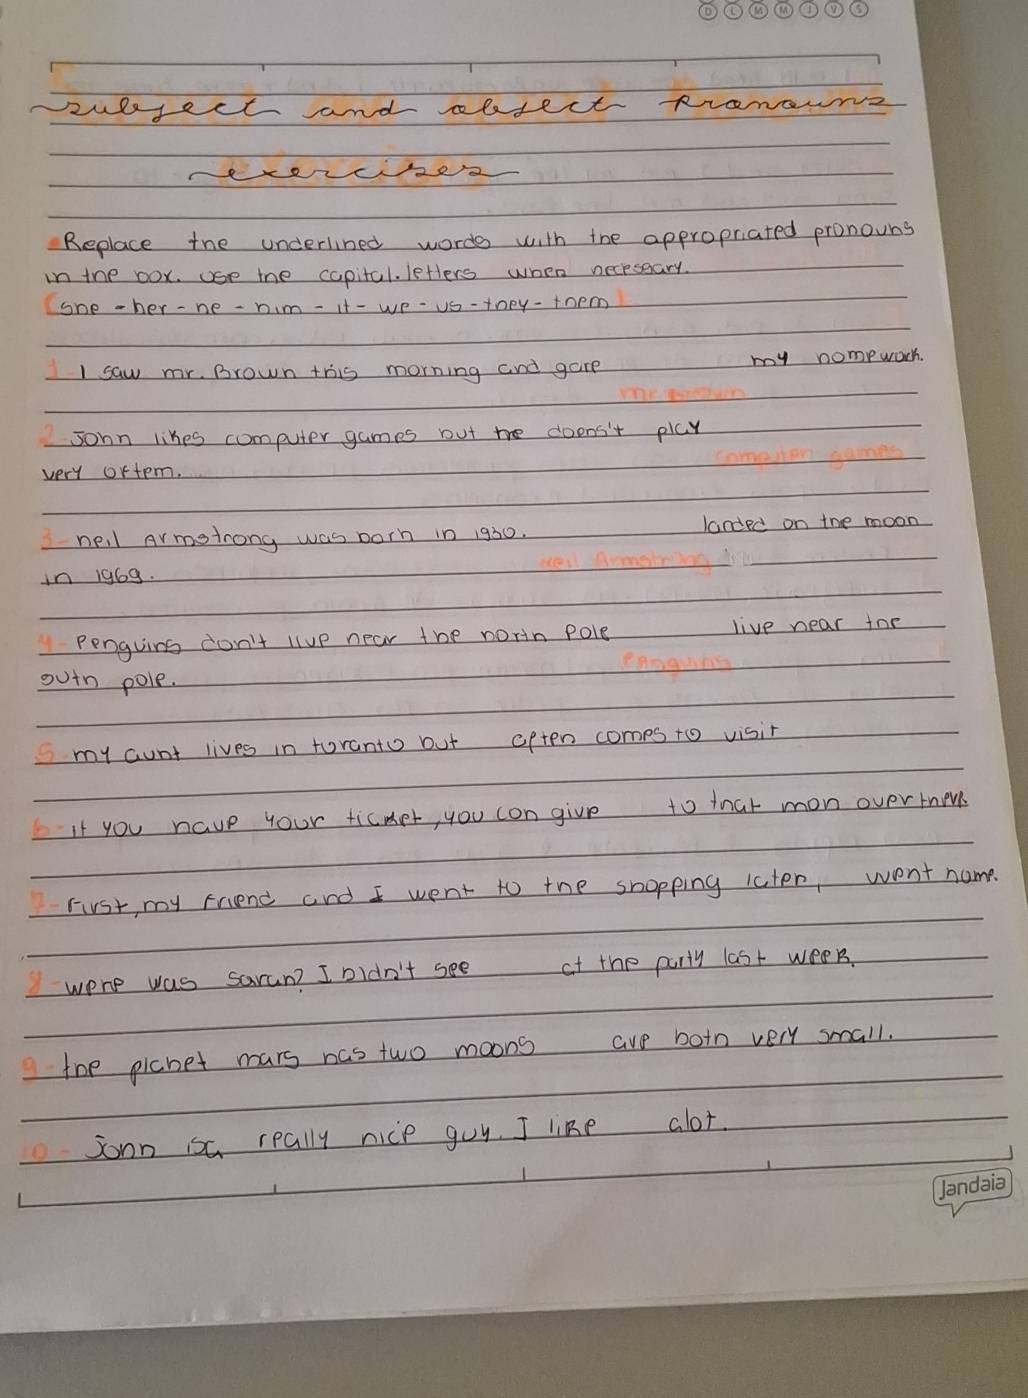 D L M M J V S
subject and object pronouns
exercises
Replace the underlined words with the appropriated pronouns
in the box. use the capital. letters when necessary.
(she - her - he - him - it - we - us - they - them)
1- I saw mr. Brown this morning and gave my homework.
mr brown
2- John likes computer games but he doens't play
computer games
very oftem.
3- neil Armstrong was born in 1930. landed on the moon
neil Armstrong
in 1969.
4- Penguins don't live near the north Pole live near the
Penguins
outh pole.
5- my aunt lives in toranto but often comes to visit
6- if you have your ticket, you can give to that man over there
7- First, my friend and I went to the shopping later, went home.
8- were was sarah? I didn't see at the party last week.
9- the planet mars has two moons are both very small.
10- John is a really nice guy. I like alot.
Jandaia